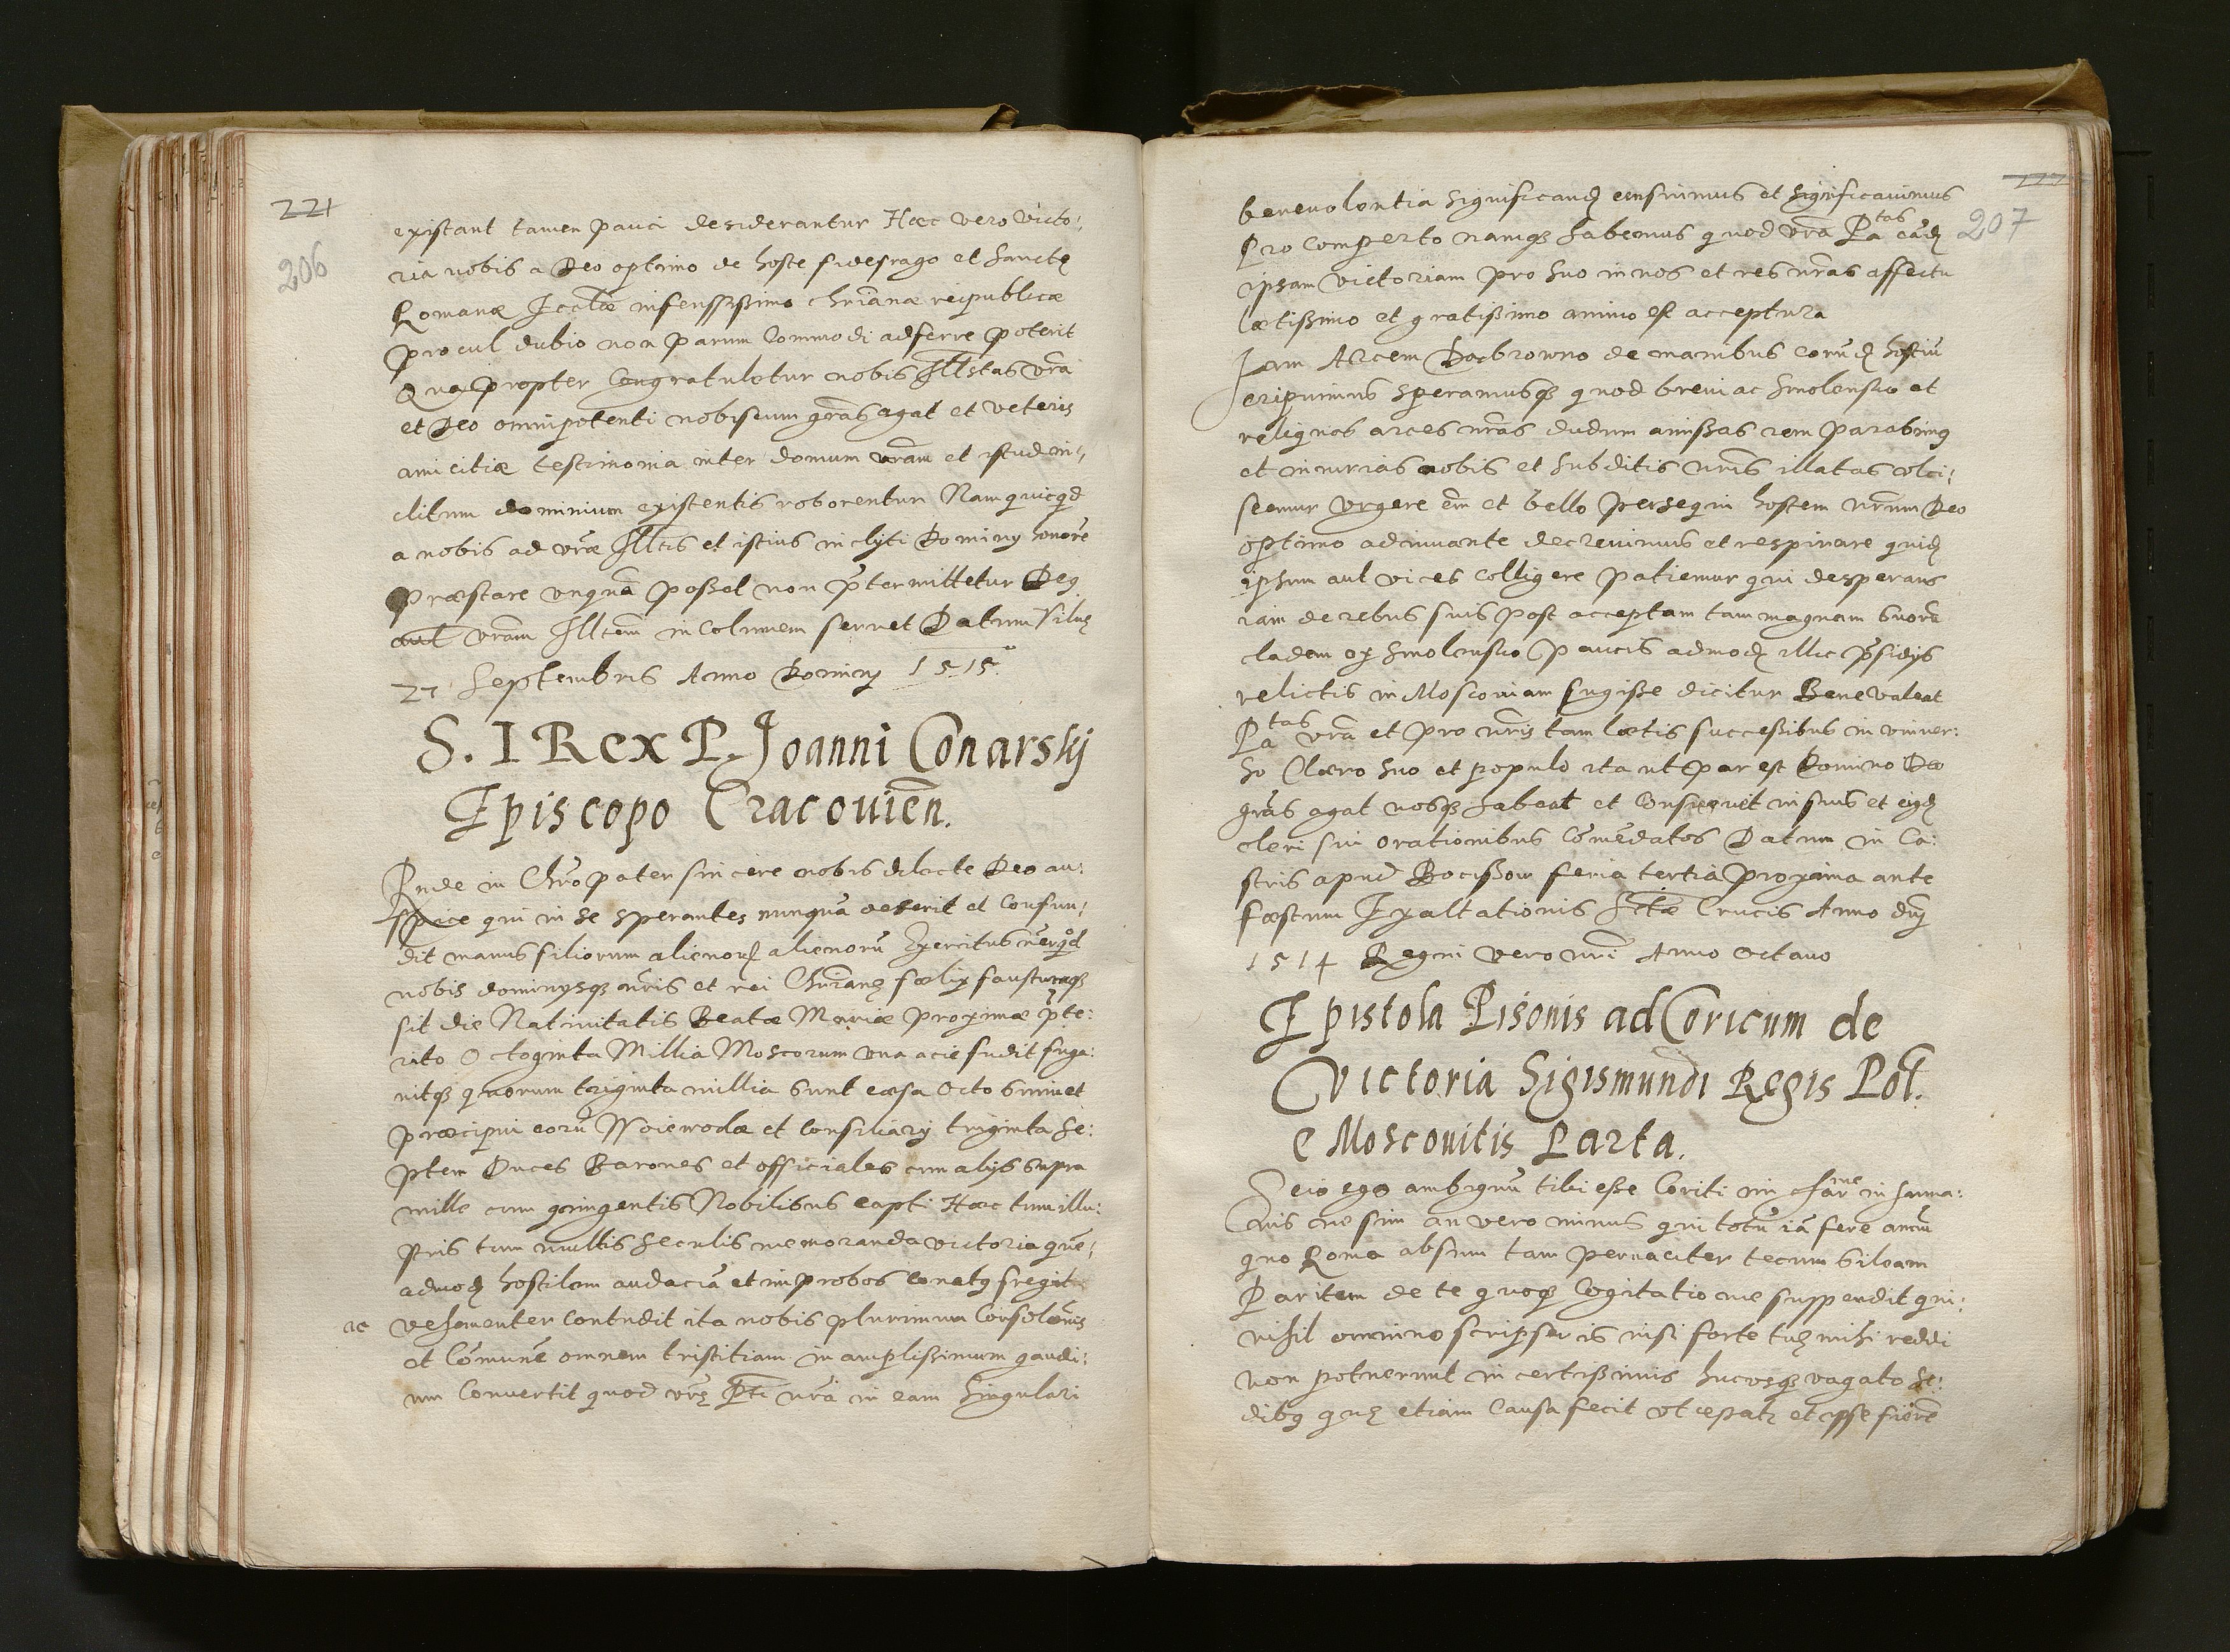 221
206
existant tamen pauci desiderantur Haec vero victo:
ria nobis a Deo optimo de hoste fidefrago et Sanctę
Romanæ Ecclæ infensissimo chrianæ reipublicæ
procul dubio non parum Commodi adferre poterit
Quapropter Congratuletur nobis Illstas vra
et Deo omnipotenti nobiscum gras agat et veteris
amicitiæ testimonia inter domum nram et istud in:
clitum dominium existentis roborentur Nam quicqd
a nobis ad vræ Illtis et istius inclyti Dominy honore
Præstare unqua posset non ptermittetur Deq
aut vram Illtem incolumem servet Datum Vilnę
27 Septembris Anno Dominy 1515
S. I Rex P. Joanni Conarskj
Episcopo Cracouien.
Rnde in Chro pater sincere nobis dilecte Deo au:
spice qui in se sperantes nunqua deserit et confun:
dit manus filiorum alienorū Exercitus nr qd
nobis dominysq nris et rei Chrianę foelix faustumq
sit die Natiuitatis Beatæ Mariæ proximæ pte:
rito Octoginta Millia Moscorum una acie fudit fuga:
uitq quorum triginta millia sunt cæsa Octo sumet
præcipui eorū Woiewodæ et consiliarij triginta se:
ptem Duces Barones et officiales cum alijs supra
mille cum quingentis Nobilibus capti Haec tum illu:
stris tum multis seculis memoranda victoria que:
admodū hostilem audaciā et improbos conatq fregit
ac vehementer contudit ita nobis plurimum Consolonis
et Cōmunē omnem tristitiam in amplissimum gaudi:
um Convertit quod vrę Pti nra in eam singulari
207
benevolentia significandū censuimus et significauimus
Pro Comperto namq habemus quod vra Patas eādē
ipsam victoriam pro suo in nos et res nras affectu
lætissimo et gratissimo animo est acceptura
Jam Arcem Dobrowno de manibus eorūdē hostiū
eripuimus speramusq quod brevi ac Smolensko et
reliquos arces nras dudum amissas rem parabimq
et iniurias nobis et subditis nris illatas vlci:
scemur vrgere em et bello persequi hostem nrum Deo
optimo adiuuante decreuimus et respirare quidē
ipsum aut vires colligere patiemur qui desperans
iam de rebus suis post acceptam tam magnam suorū
cladem ex Smolensko paucis admodū illic psidijs
relictis in Mosconiam fugisse dicitur Bene valeat
Patas vra et pro nris tam lætis successibus in vniuer:
so Clero suo et populo ita ut par est Domino Deo
gras agat nosq habeat et conseruet in suis et eiqdē
cleri sui orationibus Cōmēdatos Datum in Ca:
stris apud Borissow feria tertia proxima ante
fæstum Exaltationis Sctæ Crucis Anno dnj
1514 Regni vero nri Anno Octauo
Epistola Pisonis ad Coricum de
Victoria Sigismundi Regis Pol.
e Moscouitis Parta.
Scio ego ambiguū tibi esse Coriti mi charme in huma:
nis ne sim an vero minus qui totū iā fere annū
quo Roma absum tam pervaciter tecum sileam
Paritem de te quoq Cogitatio me suspendit qui:
nihil omnino scripseris nisi forte tuę mihi reddi
non potuerunt incertissimis hucusq vagato se:
dibq quę etiam causa fecit ut et ipse